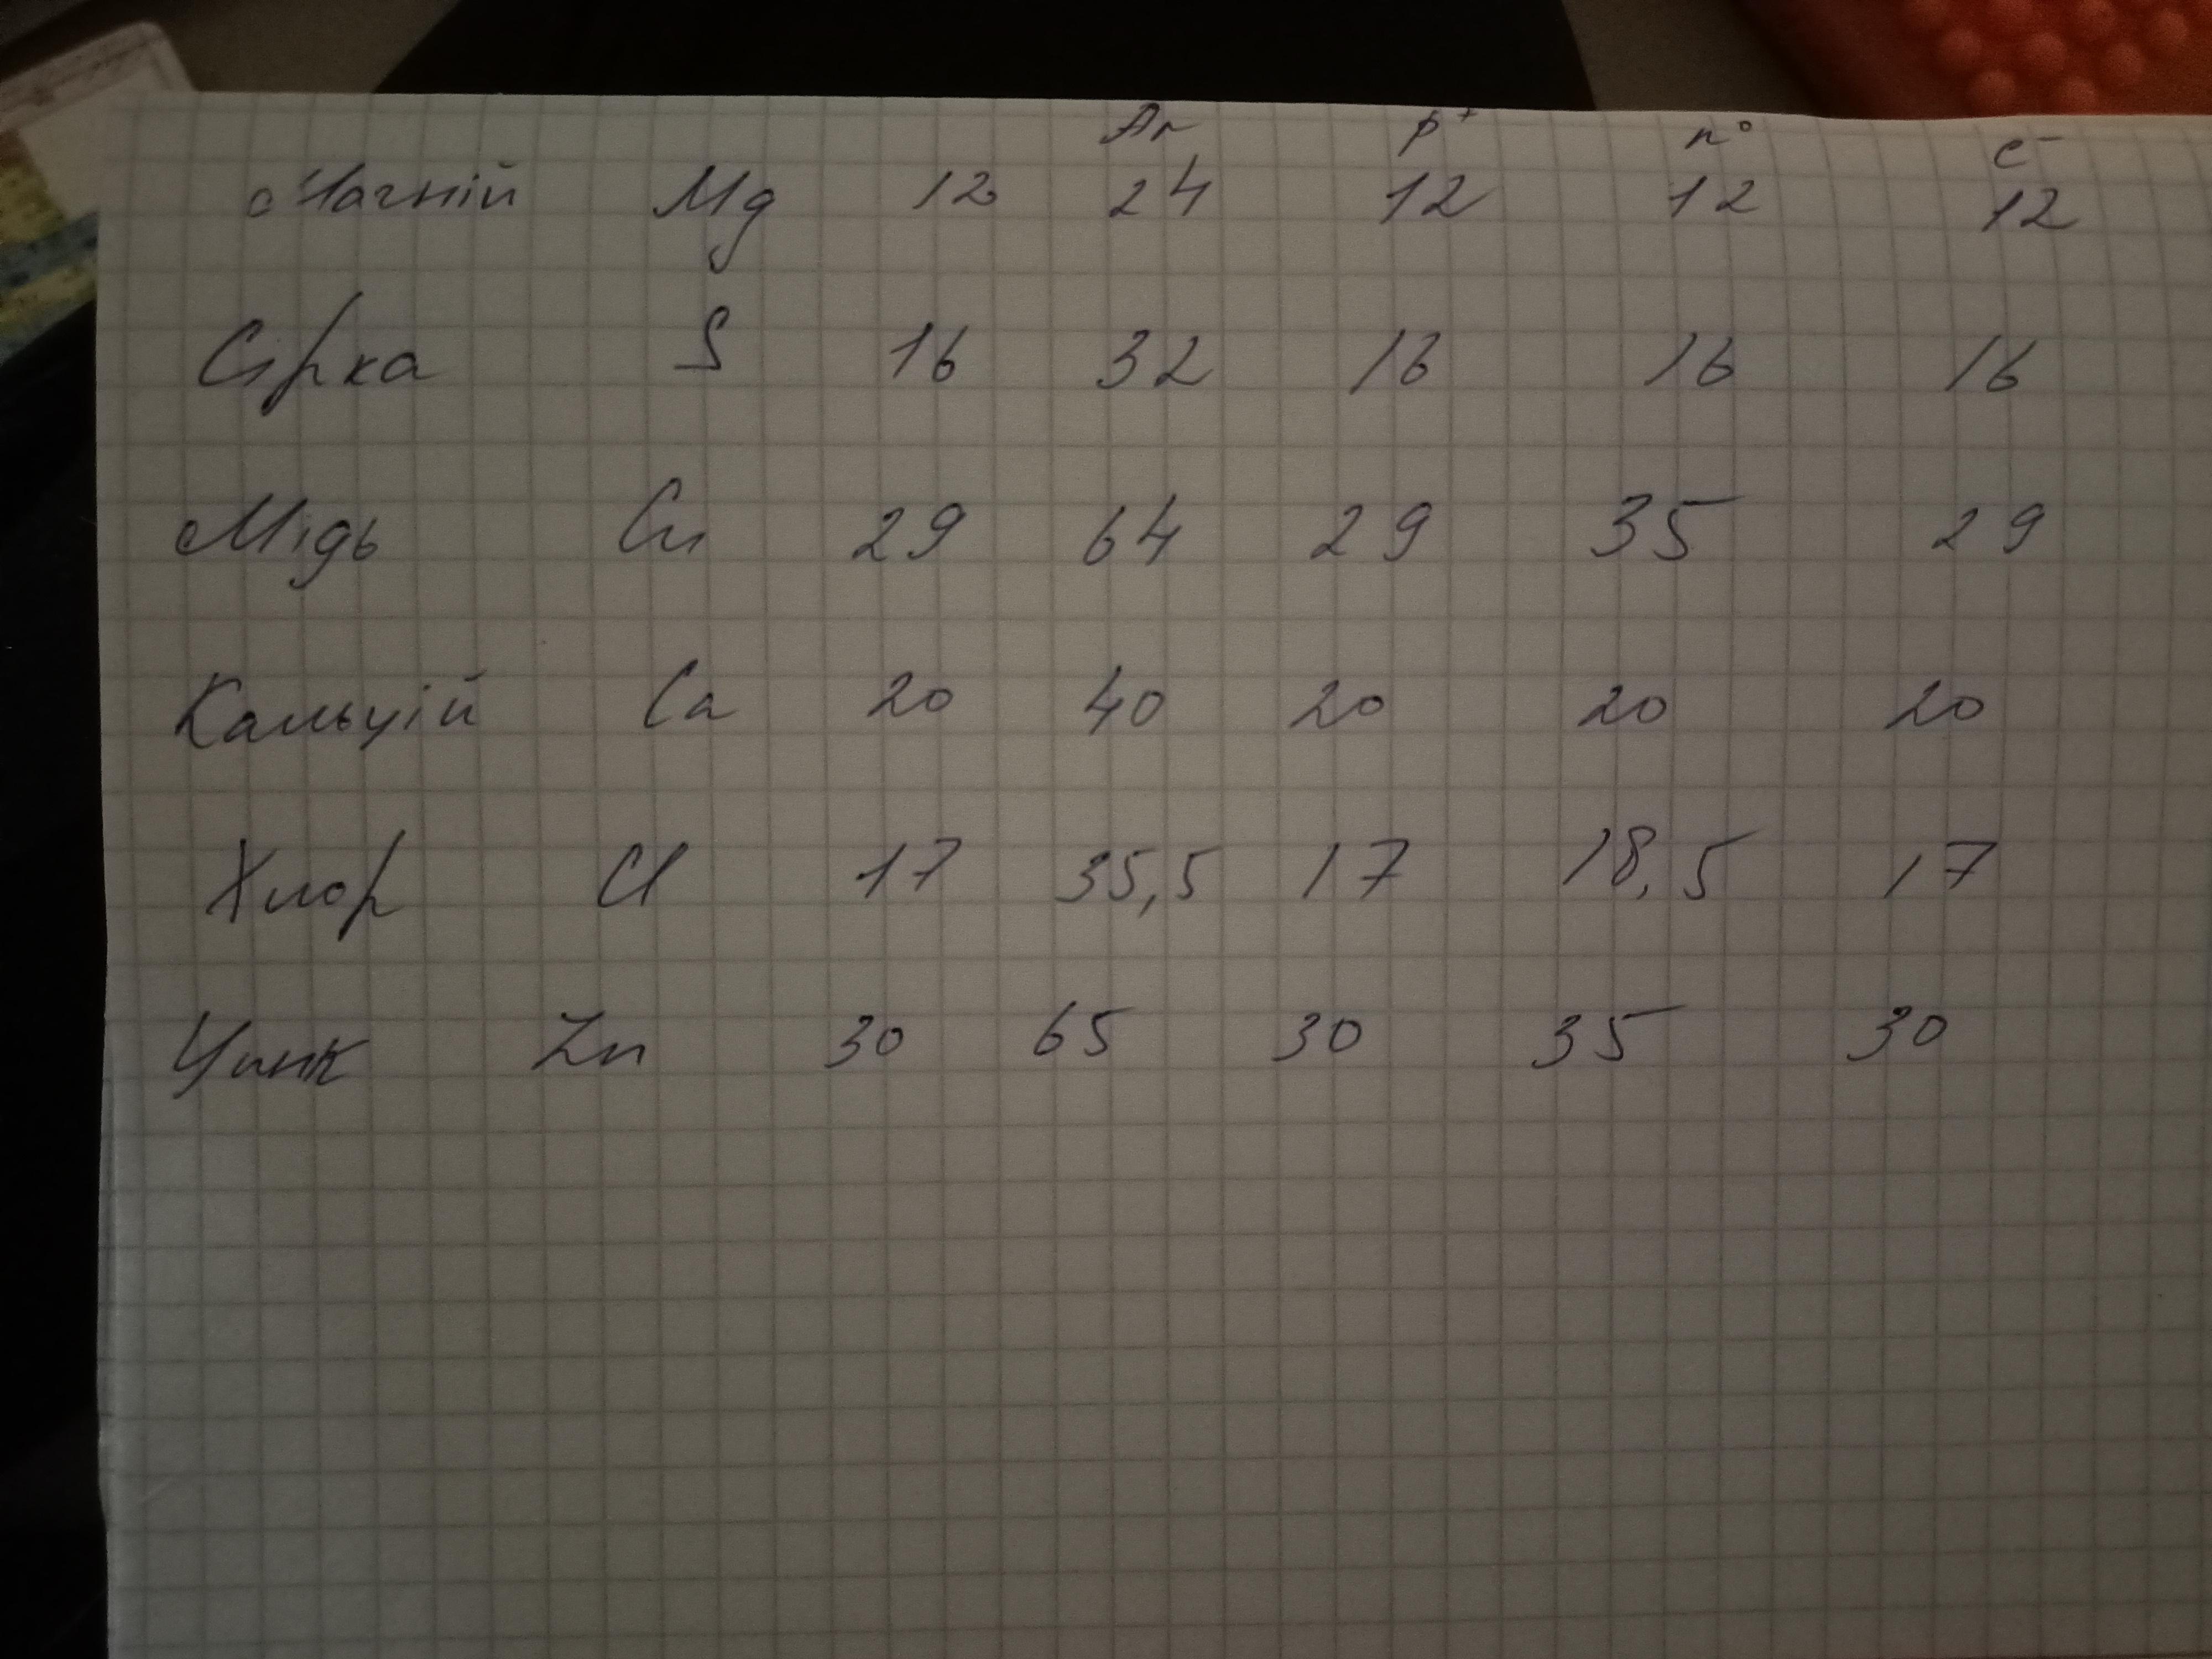 Ar p⁺ n⁰ e⁻
Магній Mg 12 24 12 12 12
Сірка S 16 32 16 16 16
Мідь Cu 29 64 29 35 29
Кальцій Ca 20 40 20 20 20
Хлор Cl 17 35,5 17 18,5 17
Цинк Zn 30 65 30 35 30